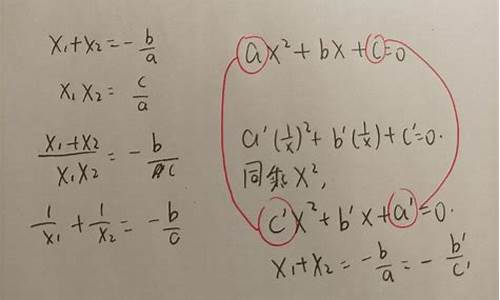 x₁+x₂=-b/a
x₁x₂=c/a
(x₁+x₂)/(x₁x₂)=-b/c
1/x₁+1/x₂=-b/c
ax²+bx+c=0
a'(1/x)²+b'(1/x)+c'=0.
同乘x²,
c'x²+b'x+a'=0.
x₁+x₂=-b/a=-b'/c'